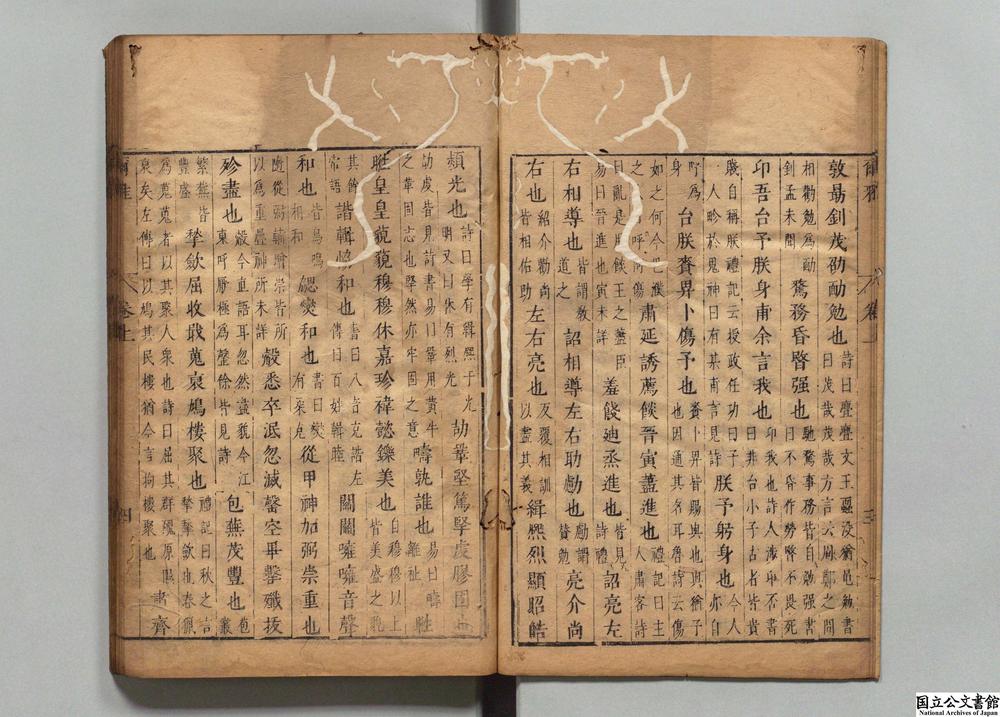 敦勗釗茂劭勔勉也 詩曰亹亹文王鼆没猶黽勉書曰茂哉茂哉方言云周鄭之間
相勸勉爲勔釗孟未聞 騖務昏暋强也 馳騖事務皆自勉强書曰不昏作勞暋不畏死
卬吾台予朕身甫余言我也 卬我也詩人涉卬否書曰非台小子古者皆貴
賤自稱朕禮記云授政任功曰予一人畛於鬼神曰有某甫言見詩 朕予躬身也 今人亦自
呼爲身 台朕賚畀卜傷予也 賚卜畀皆賜與也與猶予也因通其名耳魯詩云傷
如之何今巴濮之人自呼阿傷 肅延誘薦餤晉寅藎進也 禮記曰主人肅客詩
曰亂是用餤王之藎臣易曰晉進也寅未詳 羞餞迪烝進也 皆見詩禮 詔亮左
右相導也 皆謂教道之 詔相導左右助勴也 勴謂贊勉 亮介尚
右也 紹介勸尚皆相佑助 左右亮也 反覆相訓以盡其義 緝熙烈顯昭皓
熲光也 詩曰學有緝熙于光明又曰休有烈光 劼鞏堅篤掔虔膠固也
劼虔皆見詩書易曰鞏用黃牛之革固志也掔然亦牢固之意 疇孰誰也 易曰疇離祉 暀
暀皇皇藐藐穆穆休嘉珍禕懿鑠美也 自穆穆以上皆美盛之貌
其餘常語 諧輯協和也 書曰八音克諧左傳曰百姓輯睦 關關噰噰音聲
和也 皆鳥鳴相和 勰燮和也 書曰燮友柔克 從申神加弼崇重也
隨從弼輔增崇皆所以爲重疊神所未詳 觳悉卒泯忽滅罄空畢罊殲拔
殄盡也 觳今直語耳忽然盡貌今江東呼厭極爲罊餘皆見詩 苞蕪茂豐也 苞叢
繁蕪皆豐盛 揫斂屈收戢蒐裒鳩樓聚也 禮記曰秋之言揫揫斂也春獵
爲蒐蒐者以其聚人衆也詩曰屈其群醜原隰裒矣左傳曰以鳩其民樓猶今言拘樓聚也 肅齊
国立公文書館
National Archives of Japan